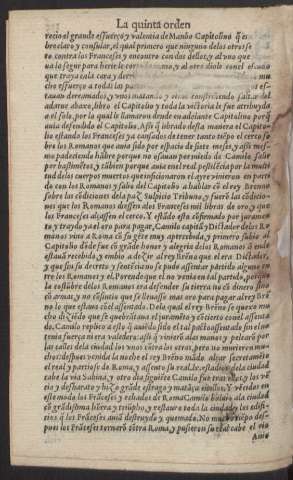 La quinta orden
recio el grande esfuerço y valentia de Manlio Capitolino q̃ es
breclaro y consular, el qual primero que ninguno de los otros se
contra los Franceses y encontro con dos dellos, y al vno que
ya lo segur para herir le y al otro diole con el escudo
que traya cara y mu
cho esfuerço a toda la es
tauan derramados, y vnos matando, y otros constriñendo saltar del
adarue abaxo, libro el Capitolio y toda la victoria le fue atribuyda
a el solo, por la qual le llamaron dende en adelante Capitolino porq̃
auia defendido el Capitolio. Assi q̃ librado desta manera el Capito
lio estando los Franceses ya cansados de tener tanto tiẽpo el cerco so
bre los Romanos que auia sido por espacio de siete meses, y assi mes
mo padeciendo hãbre porque no osauan por miedo de Camilo salir
por bastimẽtos, y tãbien porque auia en el real pestilẽcia por la multi
tud de los cuerpos muertos que inficionaron el ayre vinieron en parti
do con los Romanos y salio del Capitolio a hablar cõ el rey Brenno
sobre las cõdiciones de la paz Sulpicio Tribuno, y fuerõ las cõdicio
nes que los Romanos diessen a los Franceses mil libras de oro y que
los Franceses alçassen el cerco. Y estãdo esto cõfirmado por juramen
to y traydo ya el oro para pagar, Camilo capitã y Dictador de los Ro
manos vino a Roma cõ su gẽte muy apercebida, y primero subio al
Capitolio dõde fue cõ grãde honor y alegria de los Romanos q̃ ende
estauã recebido, y embio a dezir al rey Brẽno que el era Dictador,
y que sin su decreto y sentẽcia no se pudo assentar partido alguno en
tre los Romanos y el. Por ende que el no venia en tal partido, porque
la costũbre de los Romanos era defender su tierra no cõ dinero sino
cõ armas, y no cõsintio que se lleuasse mas oro para pagar al rey Brẽ
no lo que estaua cõ el assentado. De lo qual el rey Brẽno se quexo mu
cho diziẽdo que se quebrãtaua el juramẽto y cõcierto cõ el assenta
do. Camilo replico a esto q̃ auiẽdo sido el tal pacto assentado sin el no
tenia fuerça ni era valedera: assi q̃ vinierõ a las manos y pelearõ por
las calles de la ciudad los vnos cõtra los otros, pero no murieron mu
chos: despues venida la noche el rey Brẽno mãdo alçar secretamẽte
el real y partiose de Roma, y assento su real
cabe la via Sabina, y otro dia siguiẽte Camilo fue tras ellos, y los vẽ
cio y desbarato y hizo grãde estrago y matãça en ellos. Y vencidos en
este modo los Frãceses y echados de Roma Camilo boluio a la ciudad
cõ grãdissima libera y triũpho, y restauro toda la ciudad y los edifi
cios q̃ los Frãceses auiã destruydo y quemado. No mucho tiẽpo des-
pues los Frãceses tornarõ cõtra Roma, y pusieron su real cabe el rio
Anio